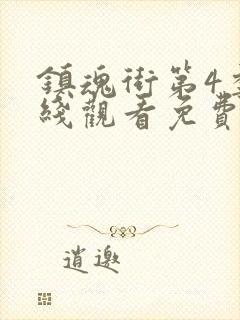 鎮魂街第4季
綫觀看免費
逍遨